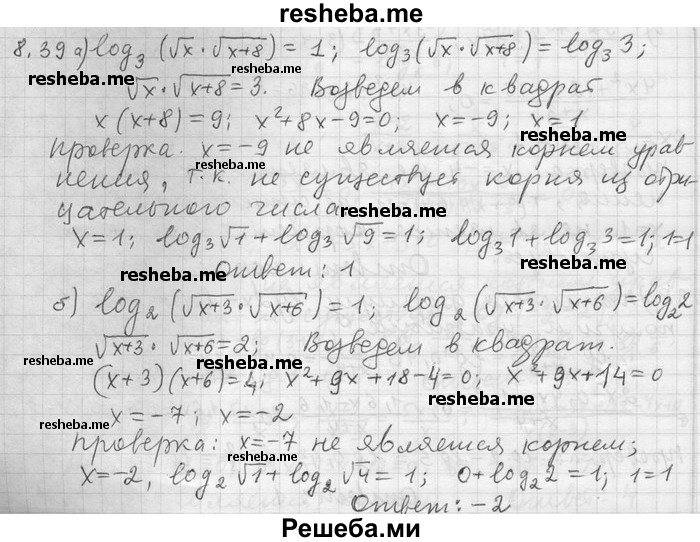 resheba.me
8.39 a) log₃(√x · √x+8) = 1; log₃(√x · √x+8) = log₃ 3;
resheba.me
√x · √x+8 = 3. Возведем в квадрат
x(x+8) = 9; x²+8x-9=0; x=-9; x=1
resheba.me
resheba.me
Проверка. x=-9 не является корнем урав-
resheba.me
нения, т.к. не существует корня из отри-
цательного числа
resheba.me
x=1; log₃√1 + log₃√9 = 1; log₃1 + log₃3 = 1; 1=1
resheba.me
resheba.me
Ответ: 1
б) log₂(√x+3 · √x+6) = 1; log₂(√x+3 · √x+6) = log₂2
resheba.me
√x+3 · √x+6 = 2; Возведем в квадрат.
resheba.me
(x+3)(x+6) = 4; x²+9x+18-4=0; x²+9x+14=0
resheba.me
resheba.me
x=-7; x=-2
resheba.me
Проверка: x=-7 не является корнем;
resheba.me
x=-2, log₂√1 + log₂√4 = 1; 0+log₂2 = 1; 1=1
resheba.me
resheba.me
Ответ: -2
Решеба.ми